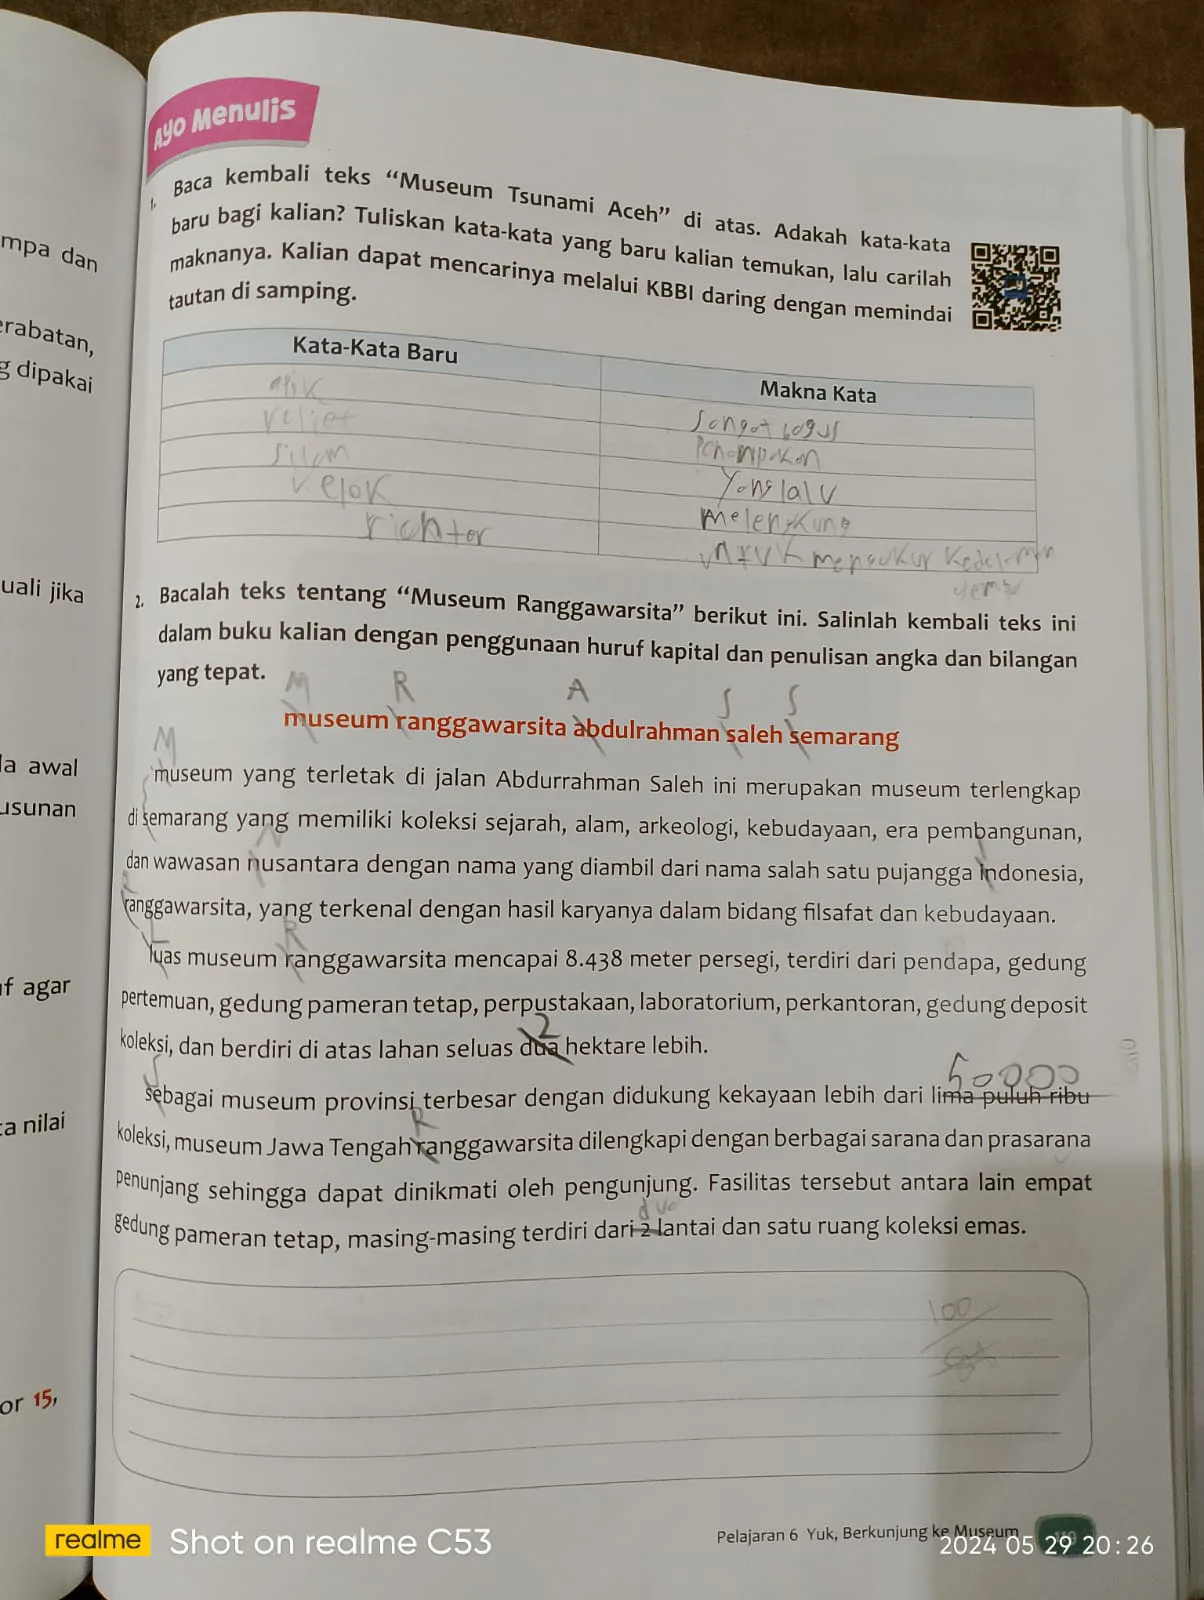 Ayo Menulis
1. Baca kembali teks “Museum Tsunami Aceh” di atas. Adakah kata-kata
baru bagi kalian? Tuliskan kata-kata yang baru kalian temukan, lalu carilah
maknanya. Kalian dapat mencarinya melalui KBBI daring dengan memindai
tautan di samping.
mpa dan
erabatan,
g dipakai
uali jika
la awal
usunan
f agar
ta nilai
or 15,
Kata-Kata Baru Makna Kata
apik Sangat bagus
relief
silam Yang lalu
Melengkung
richter
2. Bacalah teks tentang “Museum Ranggawarsita” berikut ini. Salinlah kembali teks ini
dalam buku kalian dengan penggunaan huruf kapital dan penulisan angka dan bilangan
yang tepat.
M R A S S
museum ranggawarsita abdulrahman saleh semarang
M
museum yang terletak di jalan Abdurrahman Saleh ini merupakan museum terlengkap
di semarang yang memiliki koleksi sejarah, alam, arkeologi, kebudayaan, era pembangunan,
N
dan wawasan nusantara dengan nama yang diambil dari nama salah satu pujangga indonesia,
R
ranggawarsita, yang terkenal dengan hasil karyanya dalam bidang filsafat dan kebudayaan.
L R
luas museum ranggawarsita mencapai 8.438 meter persegi, terdiri dari pendapa, gedung
pertemuan, gedung pameran tetap, perpustakaan, laboratorium, perkantoran, gedung deposit
2
koleksi, dan berdiri di atas lahan seluas dua hektare lebih.
S 50000
sebagai museum provinsi terbesar dengan didukung kekayaan lebih dari lima puluh ribu
R
koleksi, museum Jawa Tengah ranggawarsita dilengkapi dengan berbagai sarana dan prasarana
penunjang sehingga dapat dinikmati oleh pengunjung. Fasilitas tersebut antara lain empat
dua
gedung pameran tetap, masing-masing terdiri dari 2 lantai dan satu ruang koleksi emas.
100
Pelajaran 6 Yuk, Berkunjung ke Museum
realme Shot on realme C53
2024 05 29 20:26